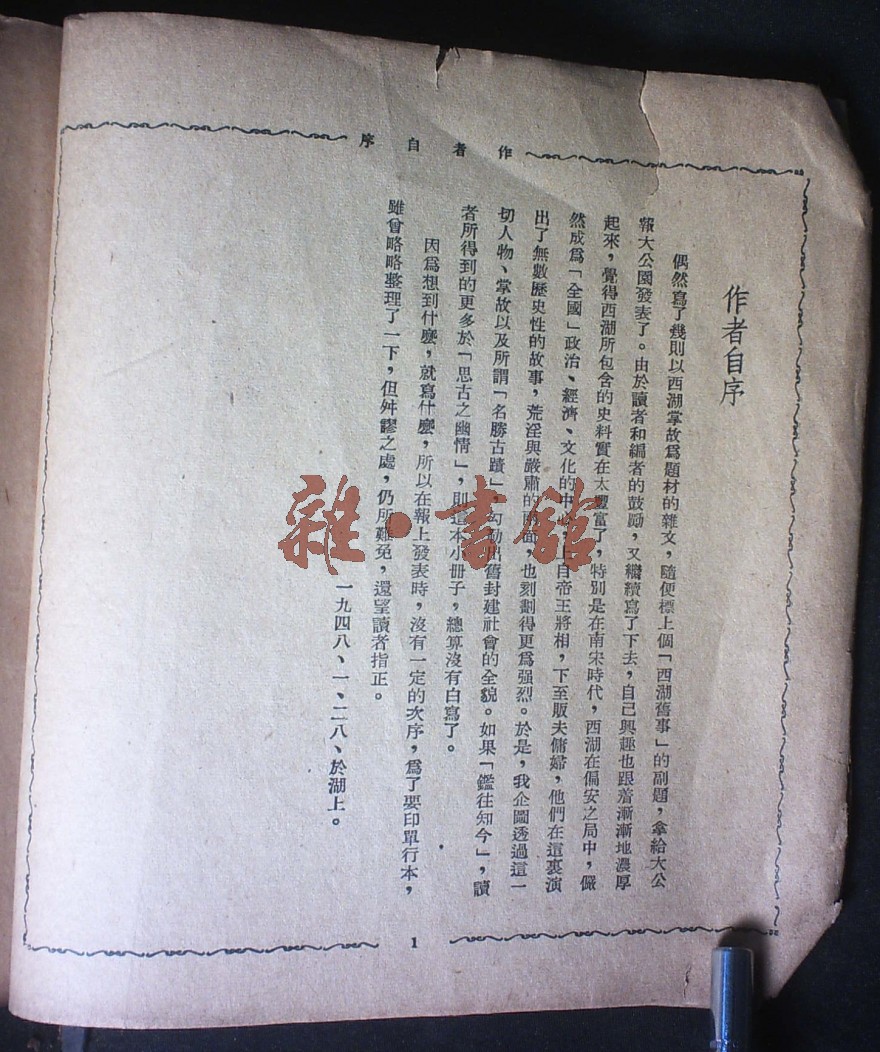 作者自序
作者自序
偶然寫了幾則以西湖掌故爲題材的雜文，隨便標上個「西湖舊事」的副題，拿給大公
報大公園發表了。由於讀者和編者的鼓勵，又繼續寫了下去，自己興趣也跟着漸漸地濃厚
起來，覺得西湖所包含的史料實在太豐富了，特別是在南宋時代，西湖在偏安之局中，儼
然成爲「全國」政治、經濟、文化的中心，上自帝王將相，下至販夫傭婦，他們在這裏演
出了無數歷史性的故事，荒淫與嚴肅的兩面，也刻劃得更爲強烈。於是，我企圖透過這一
切人物、掌故以及所謂「名勝古蹟」，勾勒出舊封建社會的全貌。如果「鑑往知今」，讀
者所得到的更多於「思古之幽情」，則這本小冊子，總算沒有白寫了。
因爲想到什麼，就寫什麼，所以在報上發表時，沒有一定的次序，爲了要印單行本，
雖曾略略整理了一下，但舛謬之處，仍所難免，還望讀者指正。
一九四八、一、二八、於湖上。
1
雜·書館